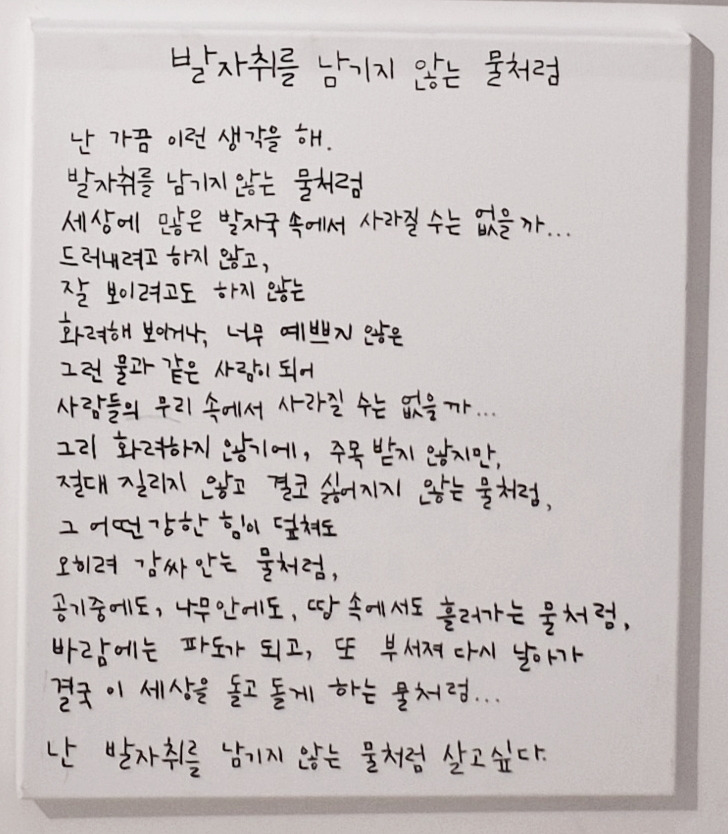 발자취를 남기지 않는 물처럼
난 가끔 이런 생각을 해.
발자취를 남기지 않는 물처럼
세상에 많은 발자국 속에서 사라질 수는 없을까...
드러내려고 하지 않고,
잘 보이려고도 하지 않는
화려해 보이거나, 너무 예쁘지 않은
그런 물과 같은 사람이 되어
사람들의 무리 속에서 사라질 수는 없을까...
그리 화려하지 않기에, 주목 받지 않지만,
절대 질리지 않고 결코 싫어지지 않는 물처럼,
그 어떤 강한 힘이 덮쳐도
오히려 감싸 안는 물처럼,
공기중에도, 나무안에도, 땅 속에서도 흘러가는 물처럼,
바람에는 파도가 되고, 또 부서져 다시 날아가
결국 이 세상을 돌고 돌게 하는 물처럼...
난 발자취를 남기지 않는 물처럼 살고싶다.